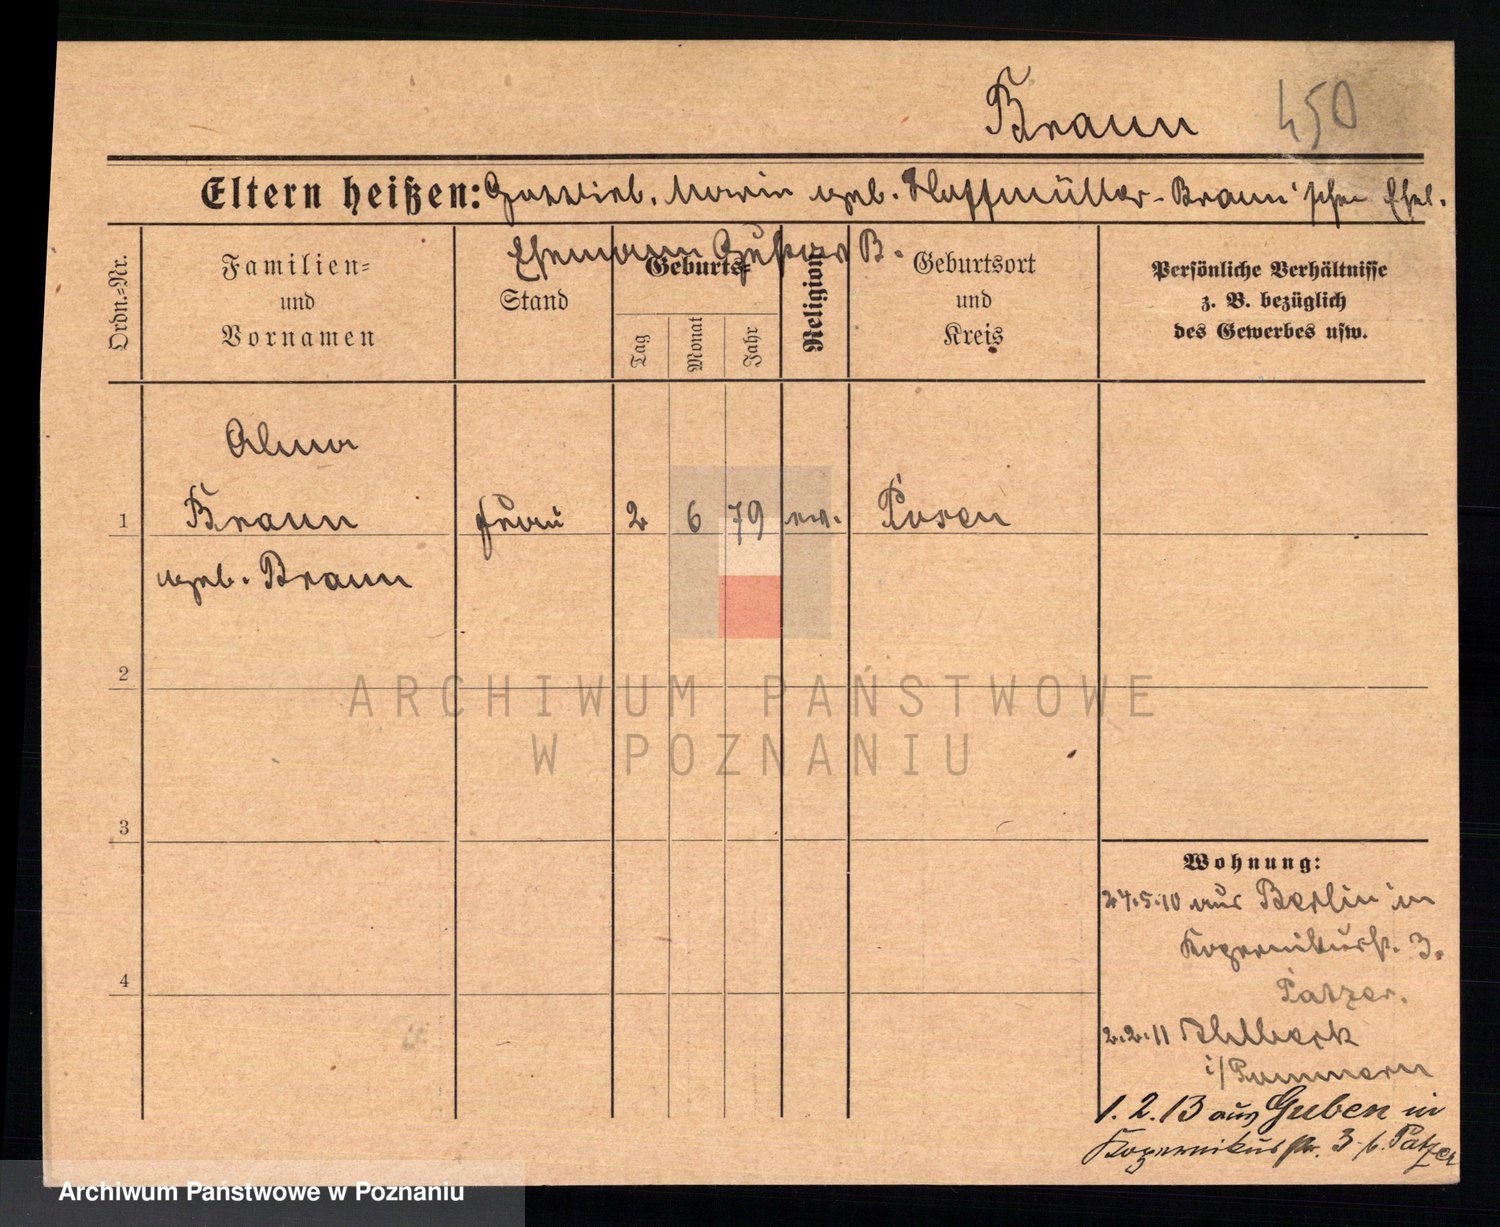 Braun 450
Eltern heißen: Gottlieb, Marie geb. Haffmüller-Braun'schen Ehel.
Ehemann Gustav B.
Ordn.=Nr.
Familien=
und
Vornamen
Stand
Geburts=
Tag
Monat
Jahr
Religion
Geburtsort
und
Kreis
Persönliche Verhältnisse
z. B. bezüglich
des Gewerbes usw.
Alma
1 Braun Frau 2 6 79 ev. Posen
geb. Braun
2
ARCHIWUM PAŃSTWOWE
W POZNANIU
3
Wohnung:
24.5.10 aus Berlin in
Kopernikusstr. 3.
4
Patzer.
2.2.11 Ahlbeck
i/Pommern
1.2.13 aus Guben in
Kopernikusstr. 3 b. Patzer
Archiwum Państwowe w Poznaniu